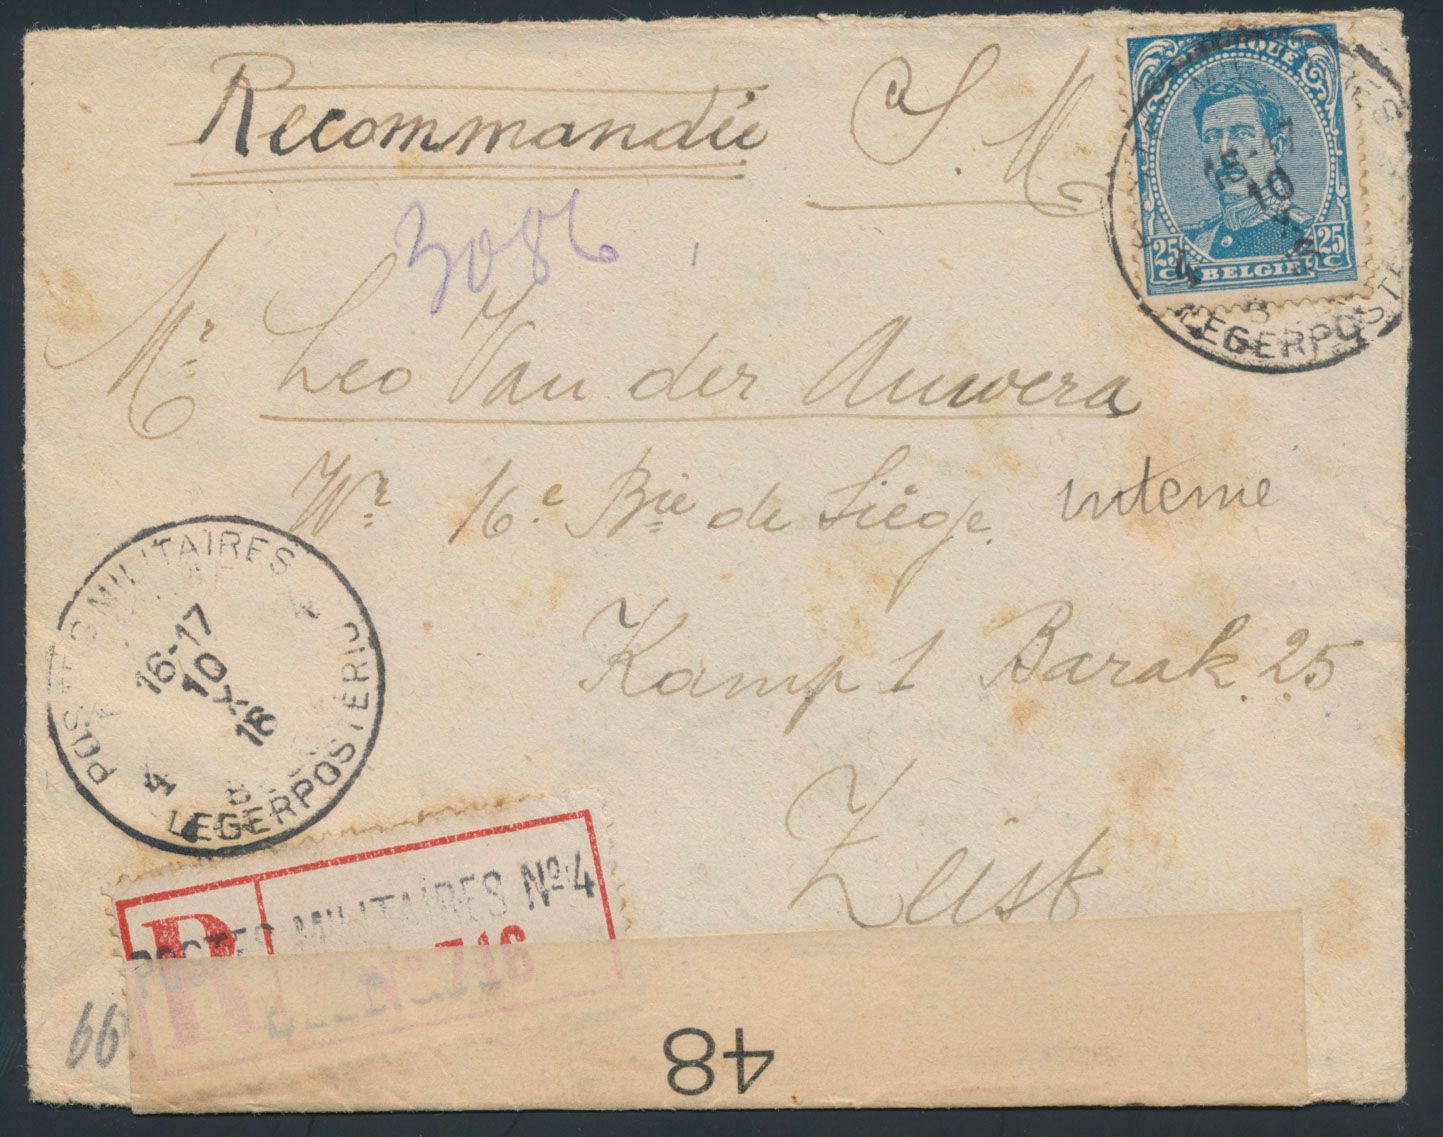 Recommandée S. M.
3086
BELGIQUE
25 C BELGIË 25 C
POSTES MILITAIRES
16-17
10
X
18
4 4
LEGERPOSTERIJ
Mr. Leo Van der Auwera
16e Bie de Siège. interné
Kamp 1 Barak. 25
Zeist
POSTES MILITAIRES
16-17
10
X
18
4 4
LEGERPOSTERIJ
R
POSTES MILITAIRES No 4
No 716
66
48